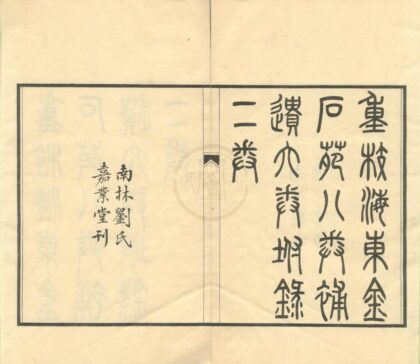 重校海東金
石苑八卷補
遺六卷坿錄
二卷
南林劉氏
嘉業堂刊